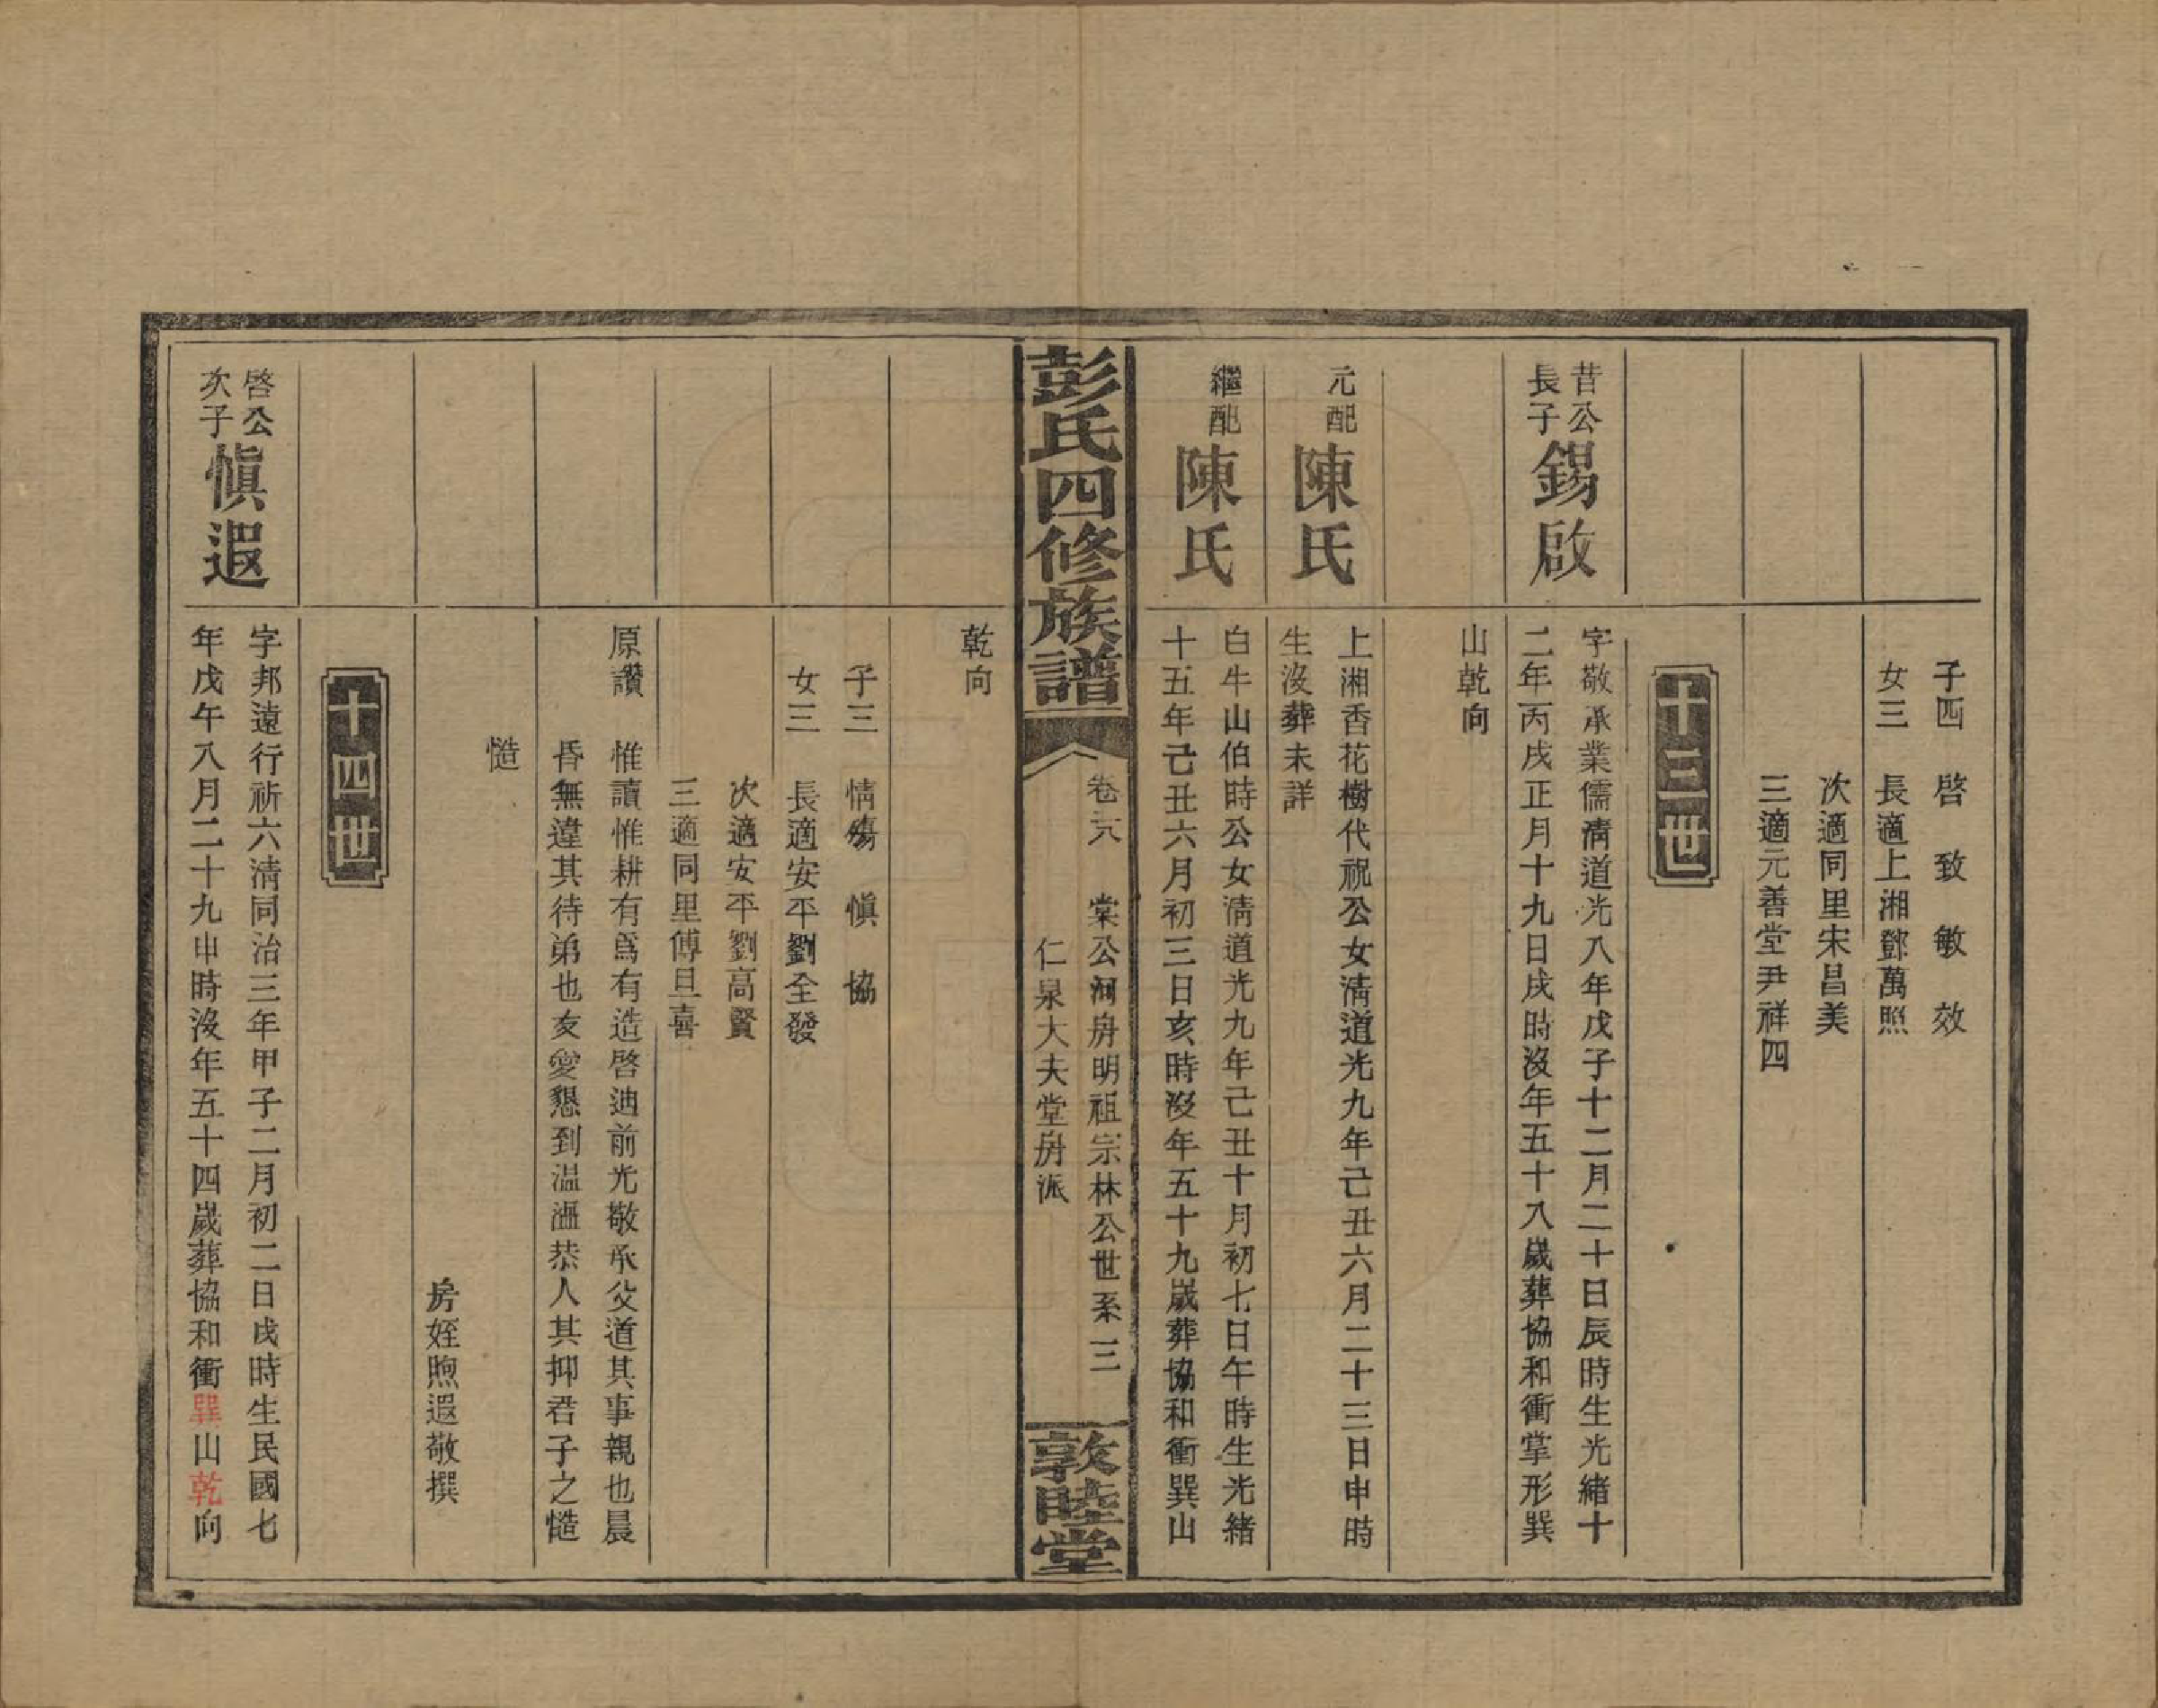 子四　啓　致　敏　效
女三　長適上湘鄧萬照
次適同里宋昌美
三適元善堂尹祥四
十三世
昔公
長子
錫啟
字敬承業儒清道光八年戊子十二月二十日辰時生光緒十
二年丙戌正月十九日戌時沒年五十八歲葬協和衝掌形巽
山乾向
元配
陳氏
上湘香花樹代祝公女清道光九年己丑六月二十三日申時
生沒葬未詳
繼配
陳氏
白牛山伯時公女清道光九年己丑十月初七日午時生光緒
十五年己丑六月初三日亥時沒年五十九歲葬協和衝巽山
彭氏四修族譜
卷六　棠公河房明祖宗林公世系三
仁泉大夫堂房派
敦睦堂
乾向
子三　情殤　愼　協
女三　長適安平劉全發
次適安平劉高賢
三適同里傅旦喜
原讚　惟讀惟耕有爲有造啓迪前光敬承父道其事親也晨
昏無違其待弟也友愛懇到温温恭人其抑君子之慥
慥
房姪煦遐敬撰
十四世
啓公
次子
愼遐
字邦遠行祈六清同治三年甲子二月初二日戌時生民國七
年戊午八月二十九申時沒年五十四歲葬協和衝巽山乾向